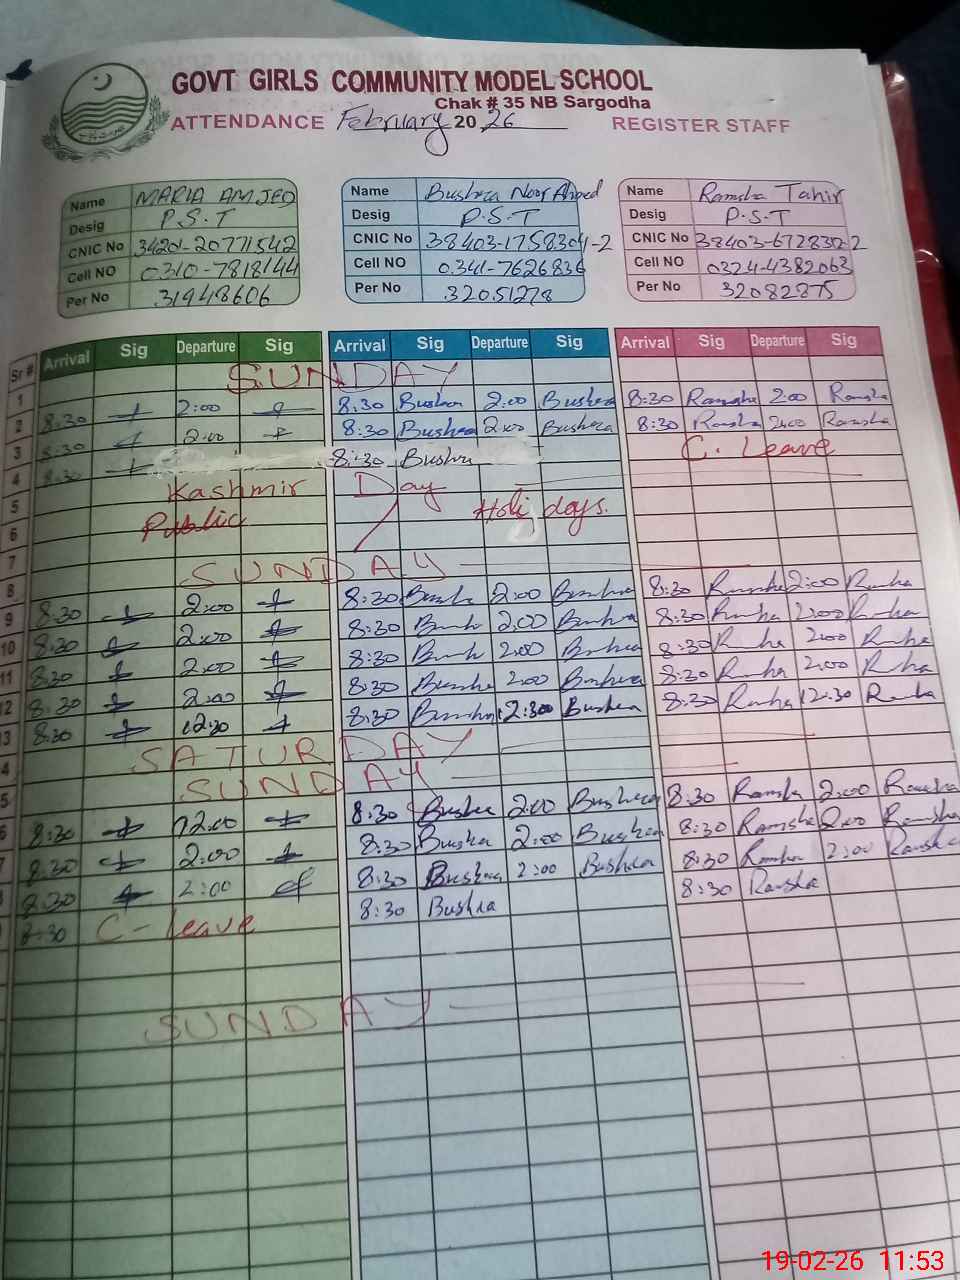 GOVT GIRLS COMMUNITY MODEL SCHOOL
Chak # 35 NB Sargodha
ATTENDANCE February 20 26 REGISTER STAFF
Name MARIA AMJED
Desig P.S.T
CNIC No
Cell NO 0310-7818144
Per No 31948606
Name Bushra Noor Ahmed
Desig P.S.T
CNIC No
Cell NO 0341-7626836
Per No 32051278
Name Ramsha Tahir
Desig P.S.T
CNIC No
Cell NO 0324-4382063
Per No 32082875
Sr # Arrival Sig Departure Sig Arrival Sig Departure Sig Arrival Sig Departure Sig
1 SUNDAY
2 8:30 2:00 8:30 Bushra 2:00 Bushra 8:30 Ramsha 2:00 Ramsha
3 8:30 2:00 8:30 Bushra 2:00 Bushra 8:30 Ramsha 2:00 Ramsha
4 8:30 8:30 Bushra C. Leave
5 Kashmir Day
6 Public Holidays.
7
8 SUNDAY
9 8:30 2:00 8:30 2:00 8:30 2:00
10 8:30 2:00 8:30 2:00 8:30 2:00
11 8:30 2:00 8:30 2:00 8:30 2:00
12 8:30 2:00 8:30 2:00 8:30 2:00
3 8:30 12:30 8:30 12:30 Bushra 8:30 12:30
4 SATURDAY
5 SUNDAY
6 8:30 2:00 8:30 Bushra 2:00 Bushra 8:30 Ramsha 2:00 Ramsha
7 8:30 2:00 8:30 Bushra 2:00 Bushra 8:30 Ramsha 2:00 Ramsha
8:30 2:00 8:30 Bushra 2:00 Bushra 8:30 Ramsha 2:00 Ramsha
8:30 C-leave 8:30 Bushra 8:30 Ramsha
SUNDAY
19-02-26 11:53